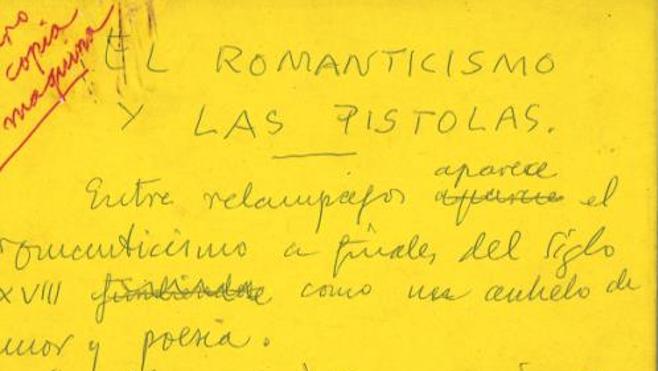 copia
maquina
EL ROMANTICISMO
Y LAS PISTOLAS.
aparece
Entre relampagos aparece el
romanticismo a finales del siglo
XVIII como un anhelo de
amor y poesia.